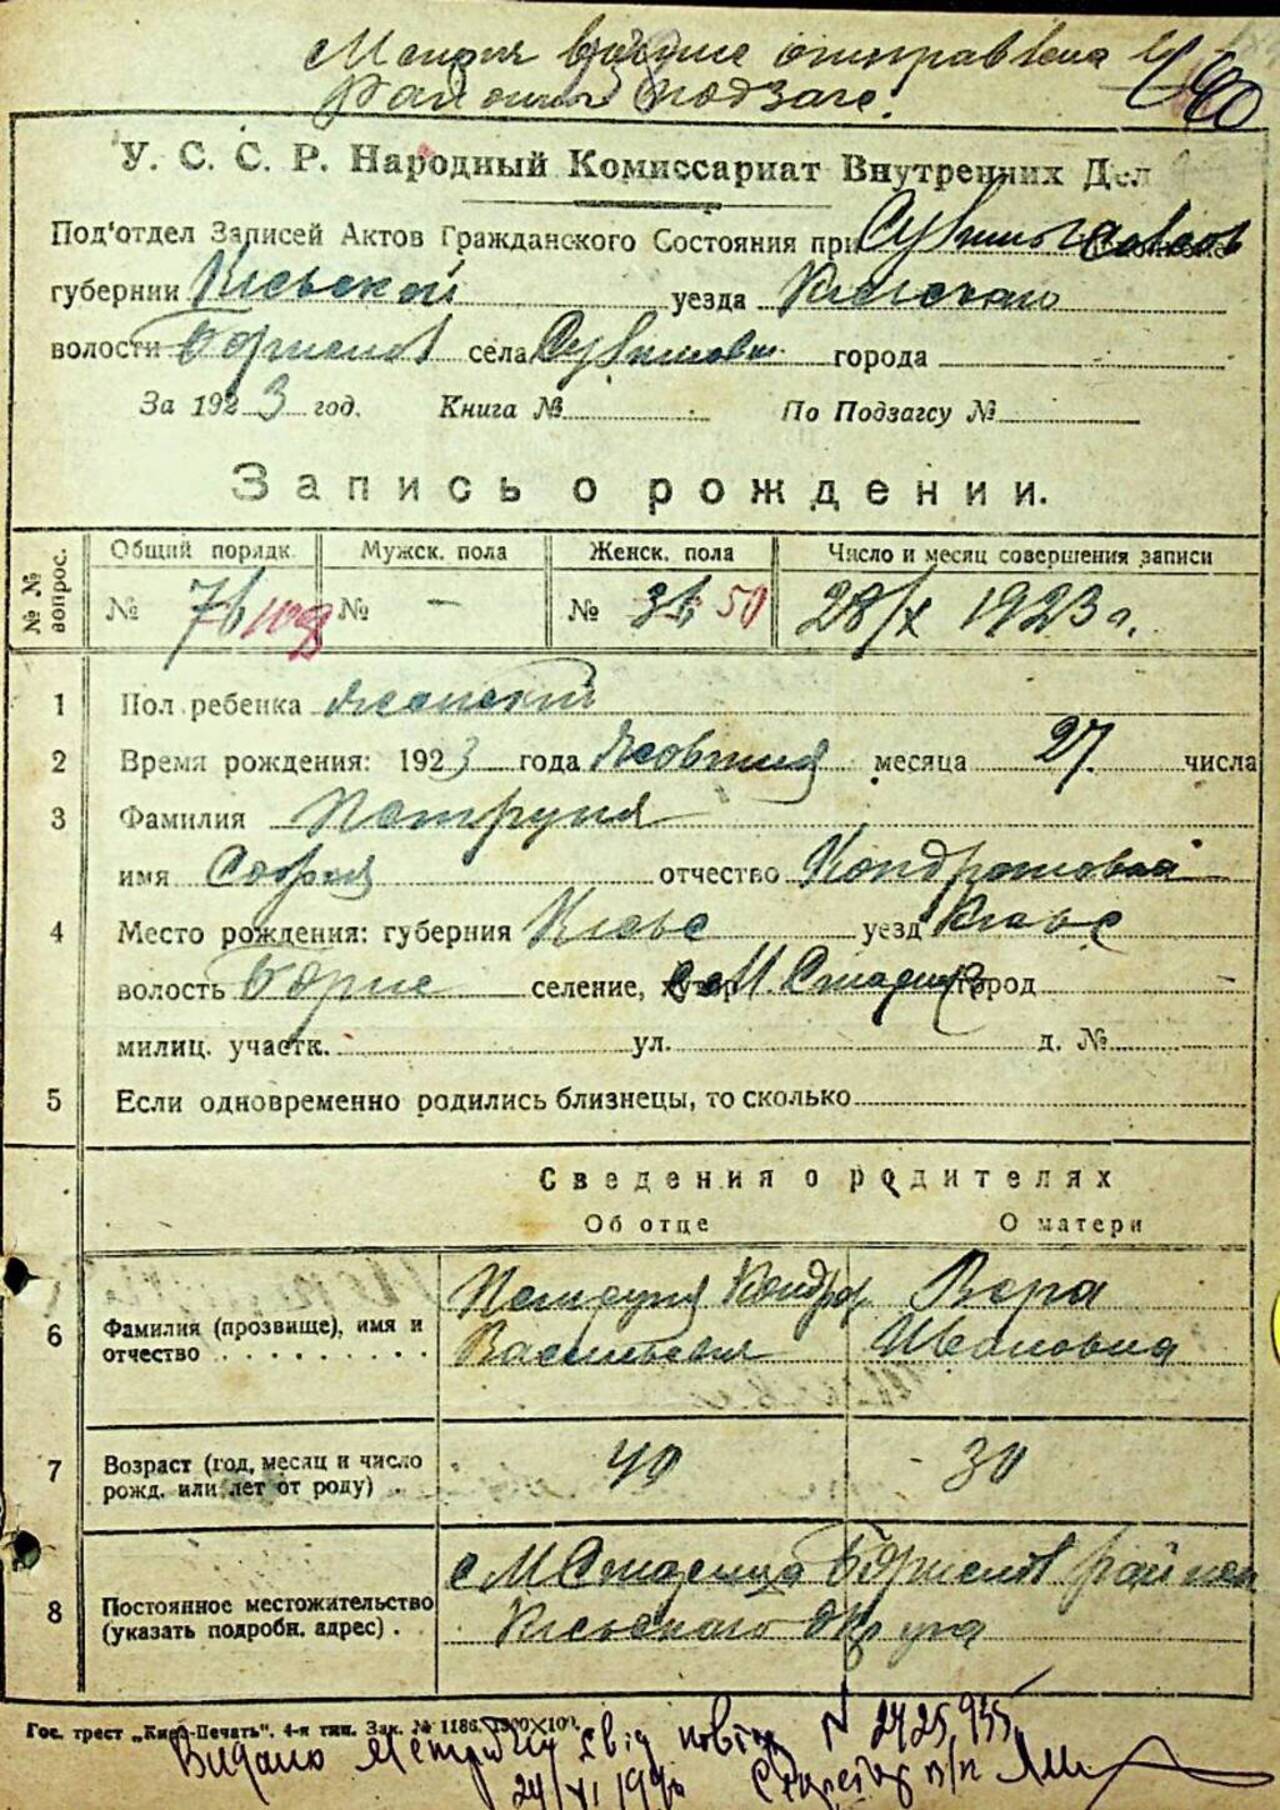 отправлена в
У. С. С. Р. Народный Комиссариат Внутренних Дел
Под'отдел Записей Актов Гражданского Состояния при
губернии Киевской уезда Киевского
волости села города
За 1923 год. Книга № По Подзагсу №
Запись о рождении.
№ № вопрос. Общий порядк. Мужск. пола Женск. пола Число и месяц совершения записи
№ 76 № – № 36 50 28/X 1923 г.
1 Пол ребенка женский
2 Время рождения: 1923 года месяца 27 числа
3 Фамилия Петруня
имя София отчество Кондратовна
4 Место рождения: губерния Киевс уезд Киевс
волость Борис селение, хутор с М. город
милиц. участк. ул. д. №
5 Если одновременно родились близнецы, то сколько
Сведения о родителях
Об отце О матери
6 Фамилия (прозвище), имя и отчество
Петруня Кондрат Вера
Васильевич Ивановна
7 Возраст (год, месяц и число рожд. или лет от роду) 40 30
8 Постоянное местожительство (указать подробн. адрес)
с М
Киевского Округа
Гос. трест „Киев-Печать". 4-я тип. Зак. № 1186.
Видано повтор N 2425935